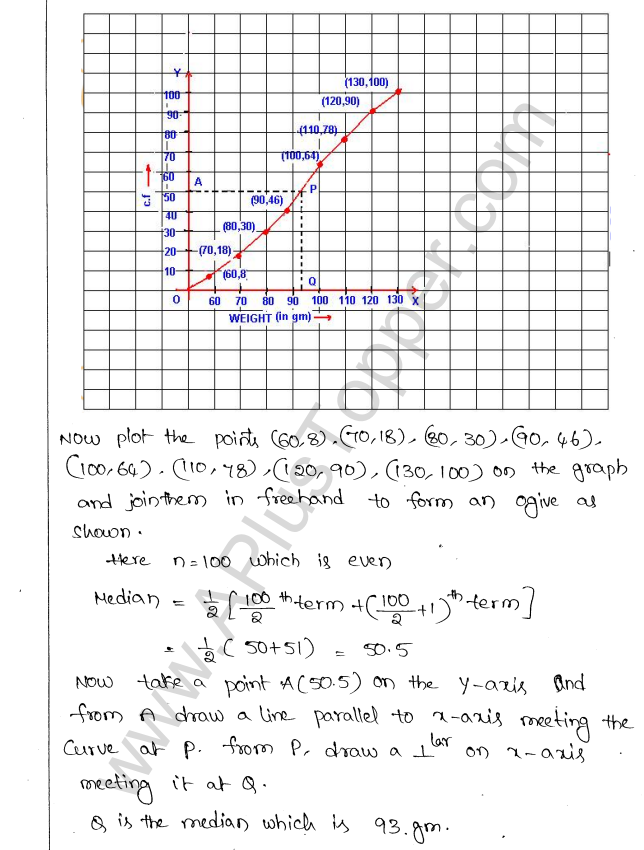 Y
(130,100)
100
(120,90)
90
(110,78)
80
(100,64)
70
60
A
P
c.f
50
(90,46)
40
(80,30)
30
(70,18)
20
(60,8
10
Q
O 60 70 80 90 100 110 120 130 X
WEIGHT (in gm)
Now plot the points (60,8), (70,18), (80,30), (90,46),
(100,64), (110,78), (120,90), (130,100) on the graph
and jointhem in freehand to form an ogive as
shown.
Here n=100 which is even
Median = 1/2 [100/2 th term + (100/2 +1)th term]
= 1/2 ( 50+51) = 50.5
Now take a point A(50.5) on the Y-axis and
from A draw a line parallel to x-axis meeting the
Curve at P. from P, draw a ⊥lar on x-axis
meeting it at Q.
Q is the median which is 93.gm.
www.APlusTopper.com